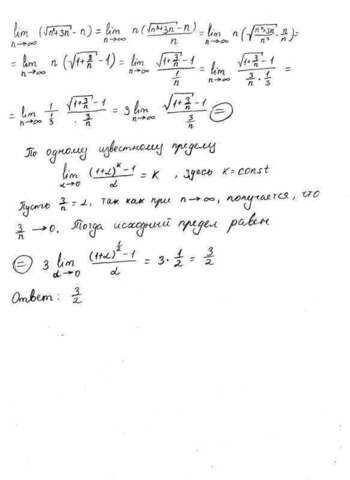 lim_{n→∞} (√(n²+3n) - n) = lim_{n→∞} n(√(n²+3n) - n)/n = lim_{n→∞} n(√((n²+3n)/n²) - n/n) =
= lim_{n→∞} n(√(1+3/n) - 1) = lim_{n→∞} (√(1+3/n) - 1)/(1/n) = lim_{n→∞} (√(1+3/n) - 1)/(3/n · 1/3) =
= lim_{n→∞} 1/(1/3) · (√(1+3/n) - 1)/(3/n) = 3 lim_{n→∞} (√(1+3/n) - 1)/(3/n) =
По одному известному пределу
lim_{α→0} ((1+α)^k - 1)/α = K, здесь K = const
Пусть 3/n = α, так как при n→∞, получается, что
3/n → 0. Тогда исходный предел равен
= 3 lim_{α→0} ((1+α)^{1/2} - 1)/α = 3 · 1/2 = 3/2
Ответ: 3/2